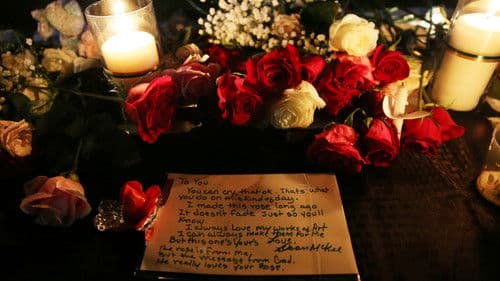 To You.
You can cry that ok. Thats what
you do on this kind of day.
I made this rose long ago
It doesn't fade Just so you'll
Know.
I always love my works of Art
I can always make them for Me
But this one's Yours Love,
The rose is from me,
But the message from God.
He really loves your Rose.